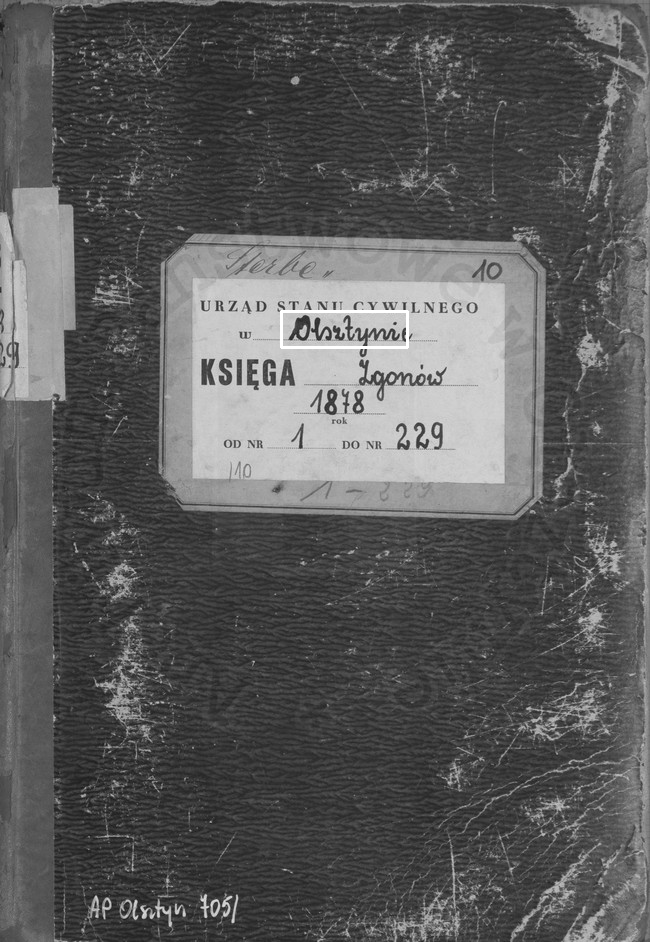 Sterbe
10
URZĄD STANU CYWILNEGO
w Olsztynie
KSIĘGA Zgonów
1878
rok
OD NR 1 DO NR 229
110
1 - 229
29
AP Olsztyn 705/